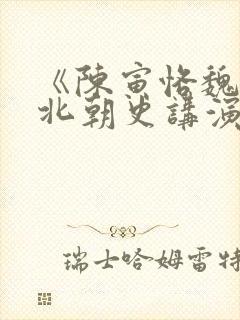 《陳寅恪魏
北朝史講演
瑞士哈姆雷特